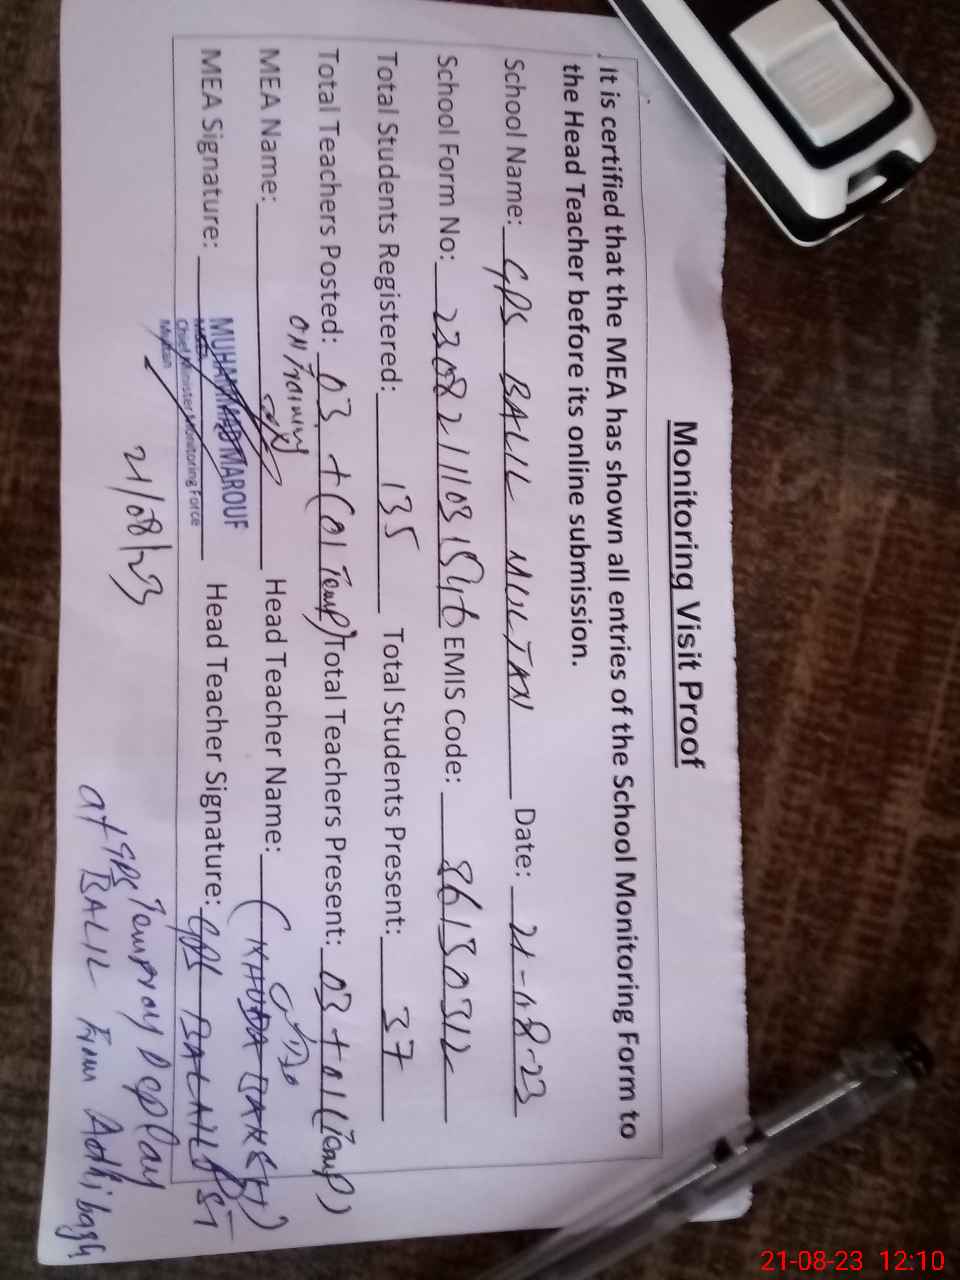 Monitoring Visit Proof
It is certified that the MEA has shown all entries of the School Monitoring Form to
the Head Teacher before its online submission.
School Name: GPS BALIL MULTAN Date: 21-08-23
School Form No: EMIS Code:
Total Students Registered: 135 Total Students Present: 37
Total Teachers Posted: 03 + (01 Temp) Total Teachers Present: 03 + 01 (Temp)
ON Training
MEA Name: Head Teacher Name: (KHUDA BAKSH)
MEA Signature: Head Teacher Signature: GPS
MUHAMMAD MAROUF
Chief Minister Monitoring Force
Multan
21/08/23
Temproy Deploy
at GPS BALIL From Adhi bagh
21-08-23 12:10